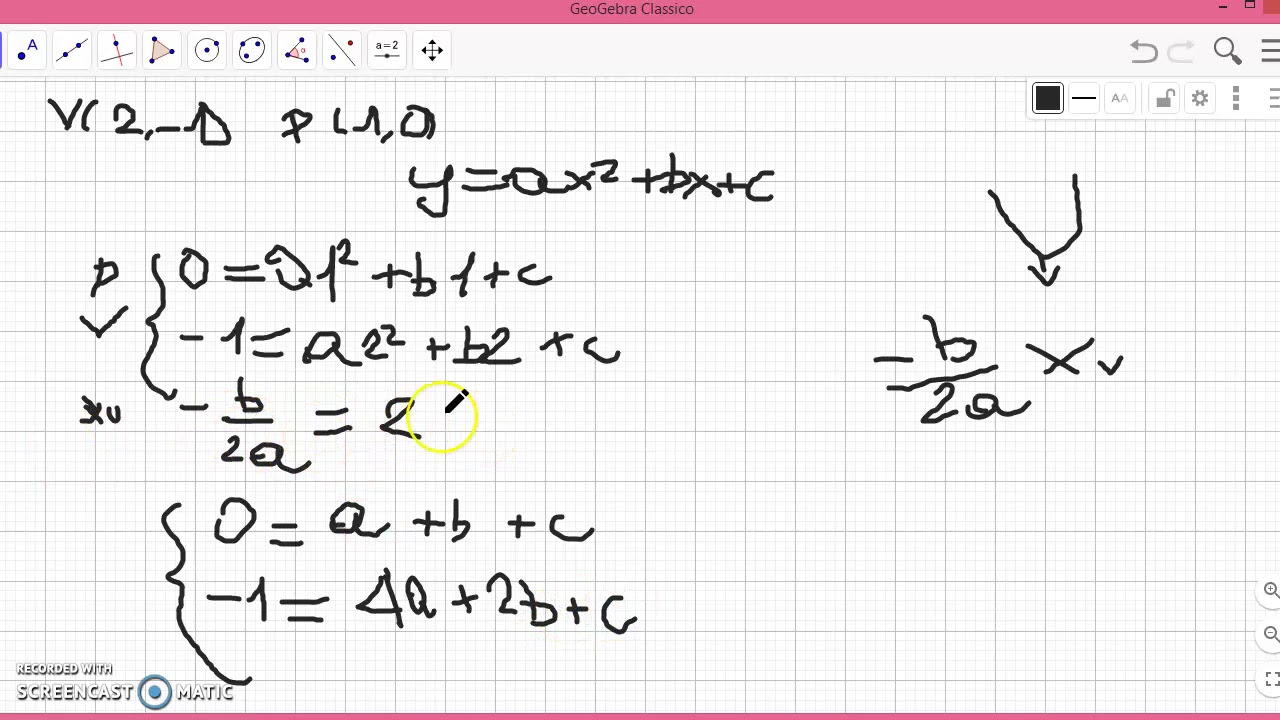 GeoGebra Classico
A
a=2
AA
V(2,-1) P(1,0)
y=ax²+bx+c
P 0=a1²+b1+c
V -1=a2²+b2+c
xv -b/2a=2
-b/2a xv
0=a+b+c
-1=4a+2b+c
RECORDED WITH
SCREENCAST MATIC